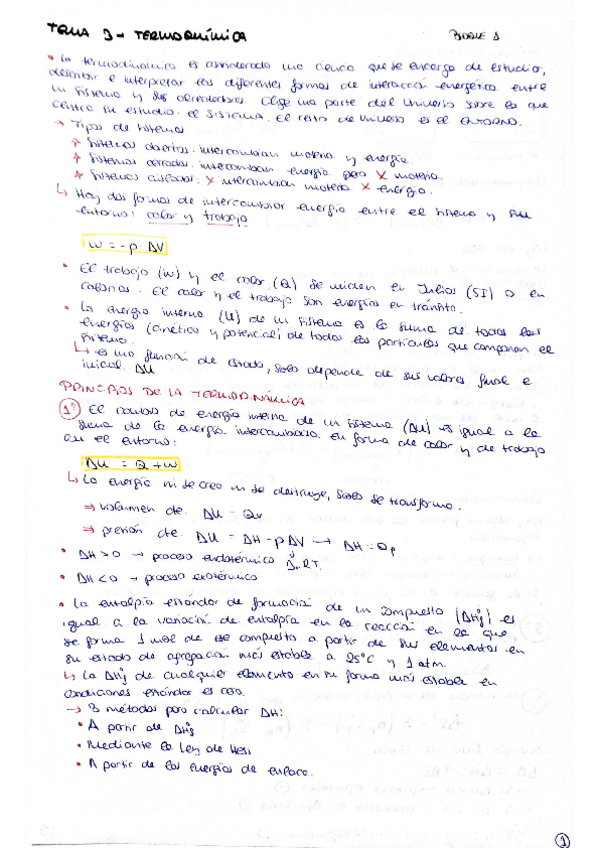 TEMA 3 - TERMOQUÍMICA BLOQUE 1
• La termodinámica es considerada una ciencia que se encarga de estudiar,
describir e interpretar las diferentes formas de interacción energética entre
un sistema y sus alrededores. Elige una parte del Universo sobre la que
centra su estudio: el SISTEMA. El resto de Universo es el ENTORNO.
→ Tipos de sistemas
* Sistemas abiertos: intercambian materia y energía.
* Sistemas cerrados: intercambian energía pero X materia.
* Sistemas aislados: X intercambian materia X energía.
↳ Hay dos formas de intercambiar energía entre el sistema y su
entorno: calor y trabajo
W = -p ΔV
• El trabajo (W) y el calor (Q) se miden en Julios (SI) o en
calorías. El calor y el trabajo son energías en tránsito.
• La energía interna (U) de un sistema es la suma de todas las
energías (cinética y potencial) de todas las partículas que componen el
sistema.
↳ es una función de estado, solo depende de sus valores final e
inicial. ΔU
PRINCIPIOS DE LA TERMODINÁMICA
1º El cambio de energía interna de un sistema (ΔU) es igual a la
suma de la energía intercambiada en forma de calor y de trabajo
con el entorno:
ΔU = Q + W
↳ La energía ni se crea ni se destruye, solo se transforma.
⇒ volumen cte. ΔU = Qv
⇒ presión cte. ΔU = ΔH - pΔV → ΔH = Qp
• ΔH > 0 → proceso endotérmico Δn RT.
• ΔH < 0 → proceso exotérmico
• La entalpía estándar de formación de un compuesto (ΔHºf) es
igual a la variación de entalpía en la reacción en la que
se forma 1 mol de ese compuesto a partir de sus elementos en
su estado de agregación más estable a 25°C y 1 atm.
↳ La ΔHºf de cualquier elemento en su forma más estable en
condiciones estándar es cero.
→ 3 métodos para calcular ΔH:
• A partir de ΔHºf
• Mediante la Ley de Hess
• A partir de las energías de enlace.
1